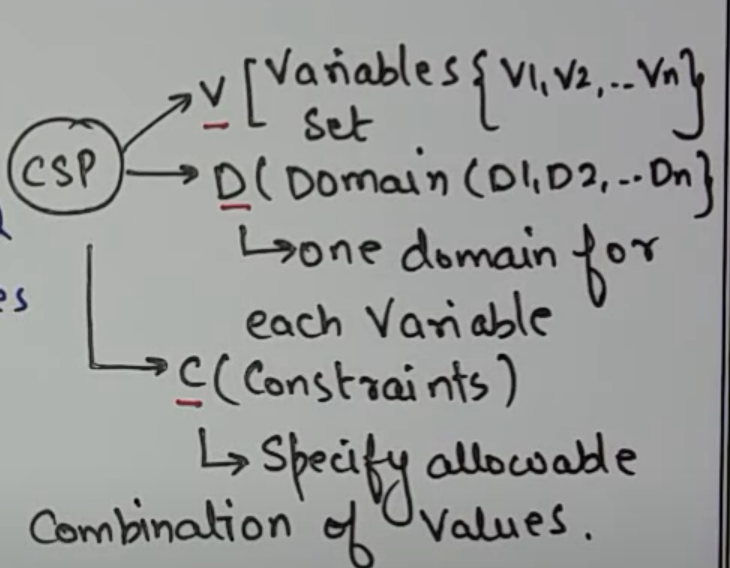 V [Variables {V1, V2, ..Vn}
Set
CSP
D (Domain (D1, D2, ..Dn}
↳one domain for
es
each Variable
C (Constraints)
↳ Specify allowable
Combination of Values.